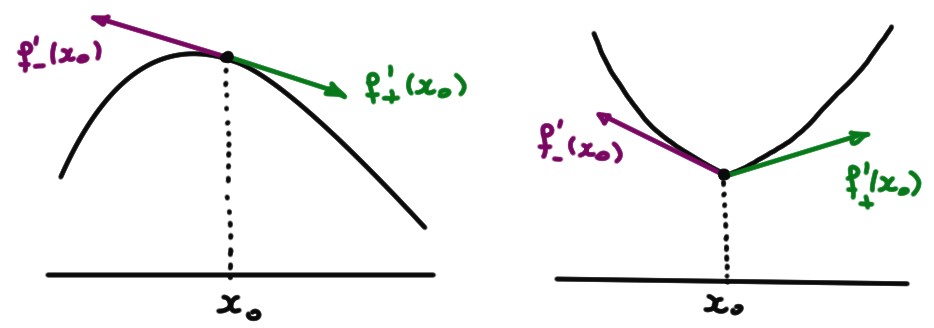 f'₋(x₀)
f'₊(x₀)
x₀
f'₋(x₀)
f'₊(x₀)
x₀